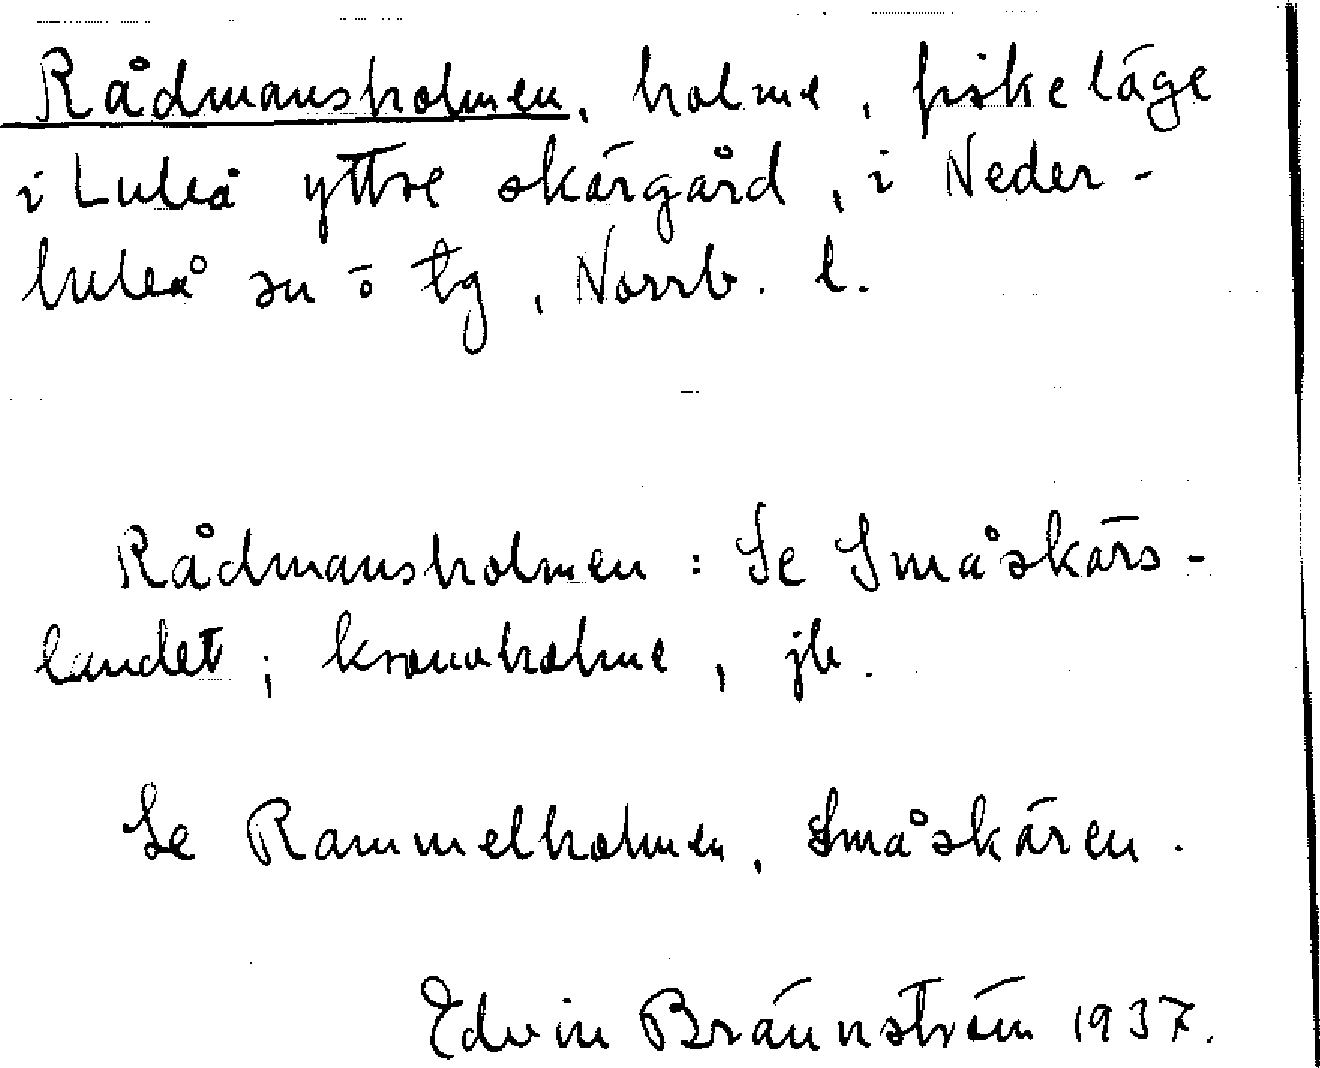 Rådmansholmen, holme, fiskeläge
i Luleå yttre skärgård, i Neder-
luleå sn o tg, Norrb. l.
Rådmansholmen: Se Småskärs-
landet; kronoholme, jb.
Se Rammelholmen, Småskären.
Edvin Brännström 1937.